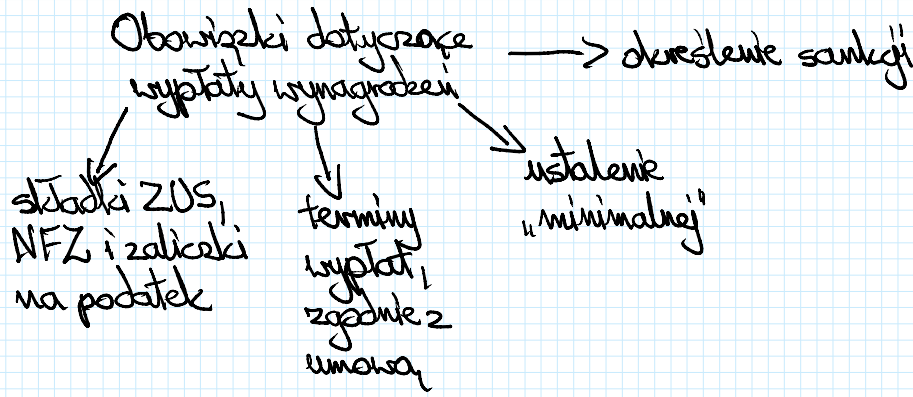 Obowiązki dotyczące
wypłaty wynagrodzeń
określenie sankcji
składki ZUS,
NFZ i zaliczki
na podatek
terminy
wypłat,
zgodnie z
umową
ustalenie
„minimalnej"